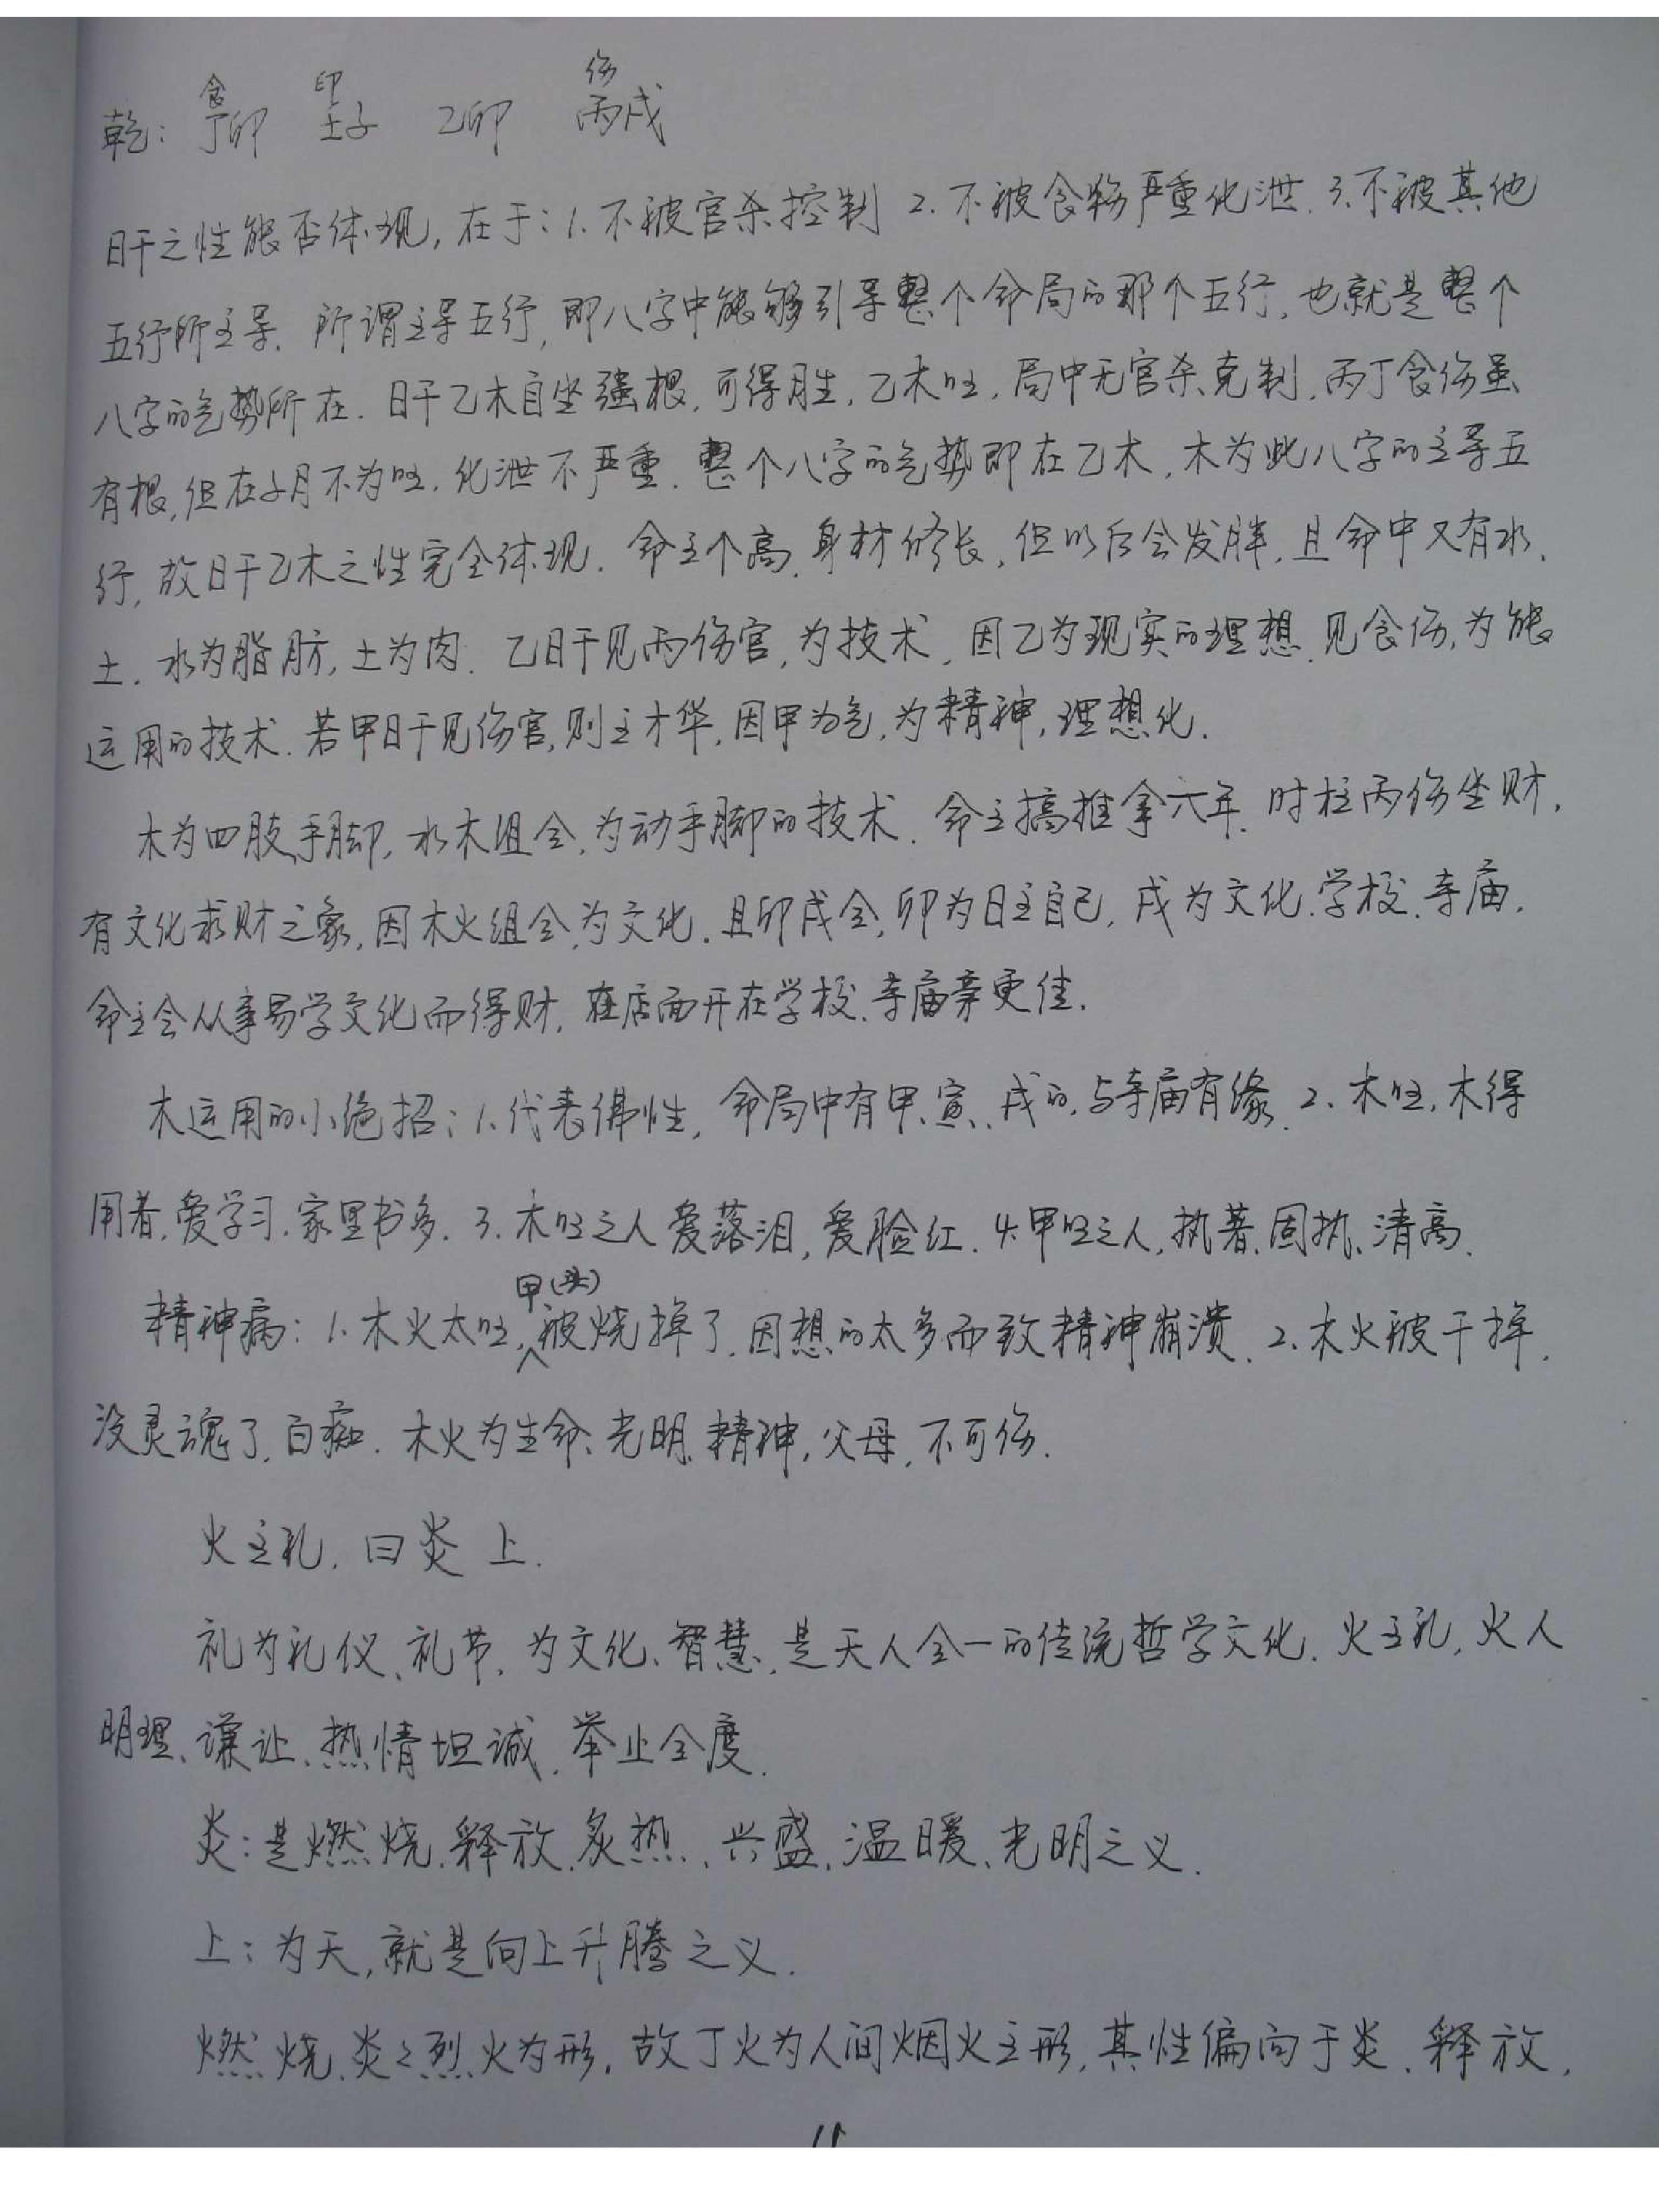 食 印 伤
乾：丁卯 壬子 乙卯 丙戌
日干之性能否体现，在于：1.不被官杀控制 2.不被食伤严重化泄.3.不被其他
五行所主导.所谓主导五行,即八字中能够引导整个命局的那个五行,也就是整个
八字的气势所在.日干乙木自坐强根,可得月生,乙木旺,局中无官杀克制,丙丁食伤虽
有根,但在子月不为旺,化泄不严重.整个八字的气势即在乙木,木为此八字的主导五
行,故日干乙木之性完全体现.命主个高,身材修长,但以后会发胖,且命中又有水、
土.水为脂肪,土为肉.乙日干见丙伤官,为技术,因乙为现实的理想,见食伤,为能
运用的技术.若甲日干见伤官,则主才华,因甲为气,为精神,理想化.
木为四肢、手脚,水木组合,为动手脚的技术.命主搞推拿六年.时柱丙伤坐财,
有文化求财之象,因木火组合,为文化.且卯戌合,卯为日主自己,戌为文化、学校、寺庙.
命主会从事易学文化而得财,在店面开在学校、寺庙旁更佳.
木运用的小绝招:1.代表佛性,命局中有甲、寅、戌的,与寺庙有缘.2.木旺,木得
用者,爱学习,家里书多.3.木旺之人爱落泪,爱脸红.4.甲旺之人,执著、固执、清高.
甲(头)
精神病:1.木火太旺,被烧掉了,因想的太多而致精神崩溃.2.木火被干掉,
没灵魂了,白痴.木火为生命、光明、精神,父母,不可伤.
火主礼,曰炎上.
礼为礼仪、礼节、为文化、智慧,是天人合一的传统哲学文化.火主礼,火人
明理、谦让、热情坦诚,举止合度.
炎:是燃烧、释放、炙热、兴盛、温暖、光明之义.
上:为天,就是向上升腾之义.
燃烧、炎炎烈火为形,故丁火为人间烟火主形,其性偏向于炎、释放,
11